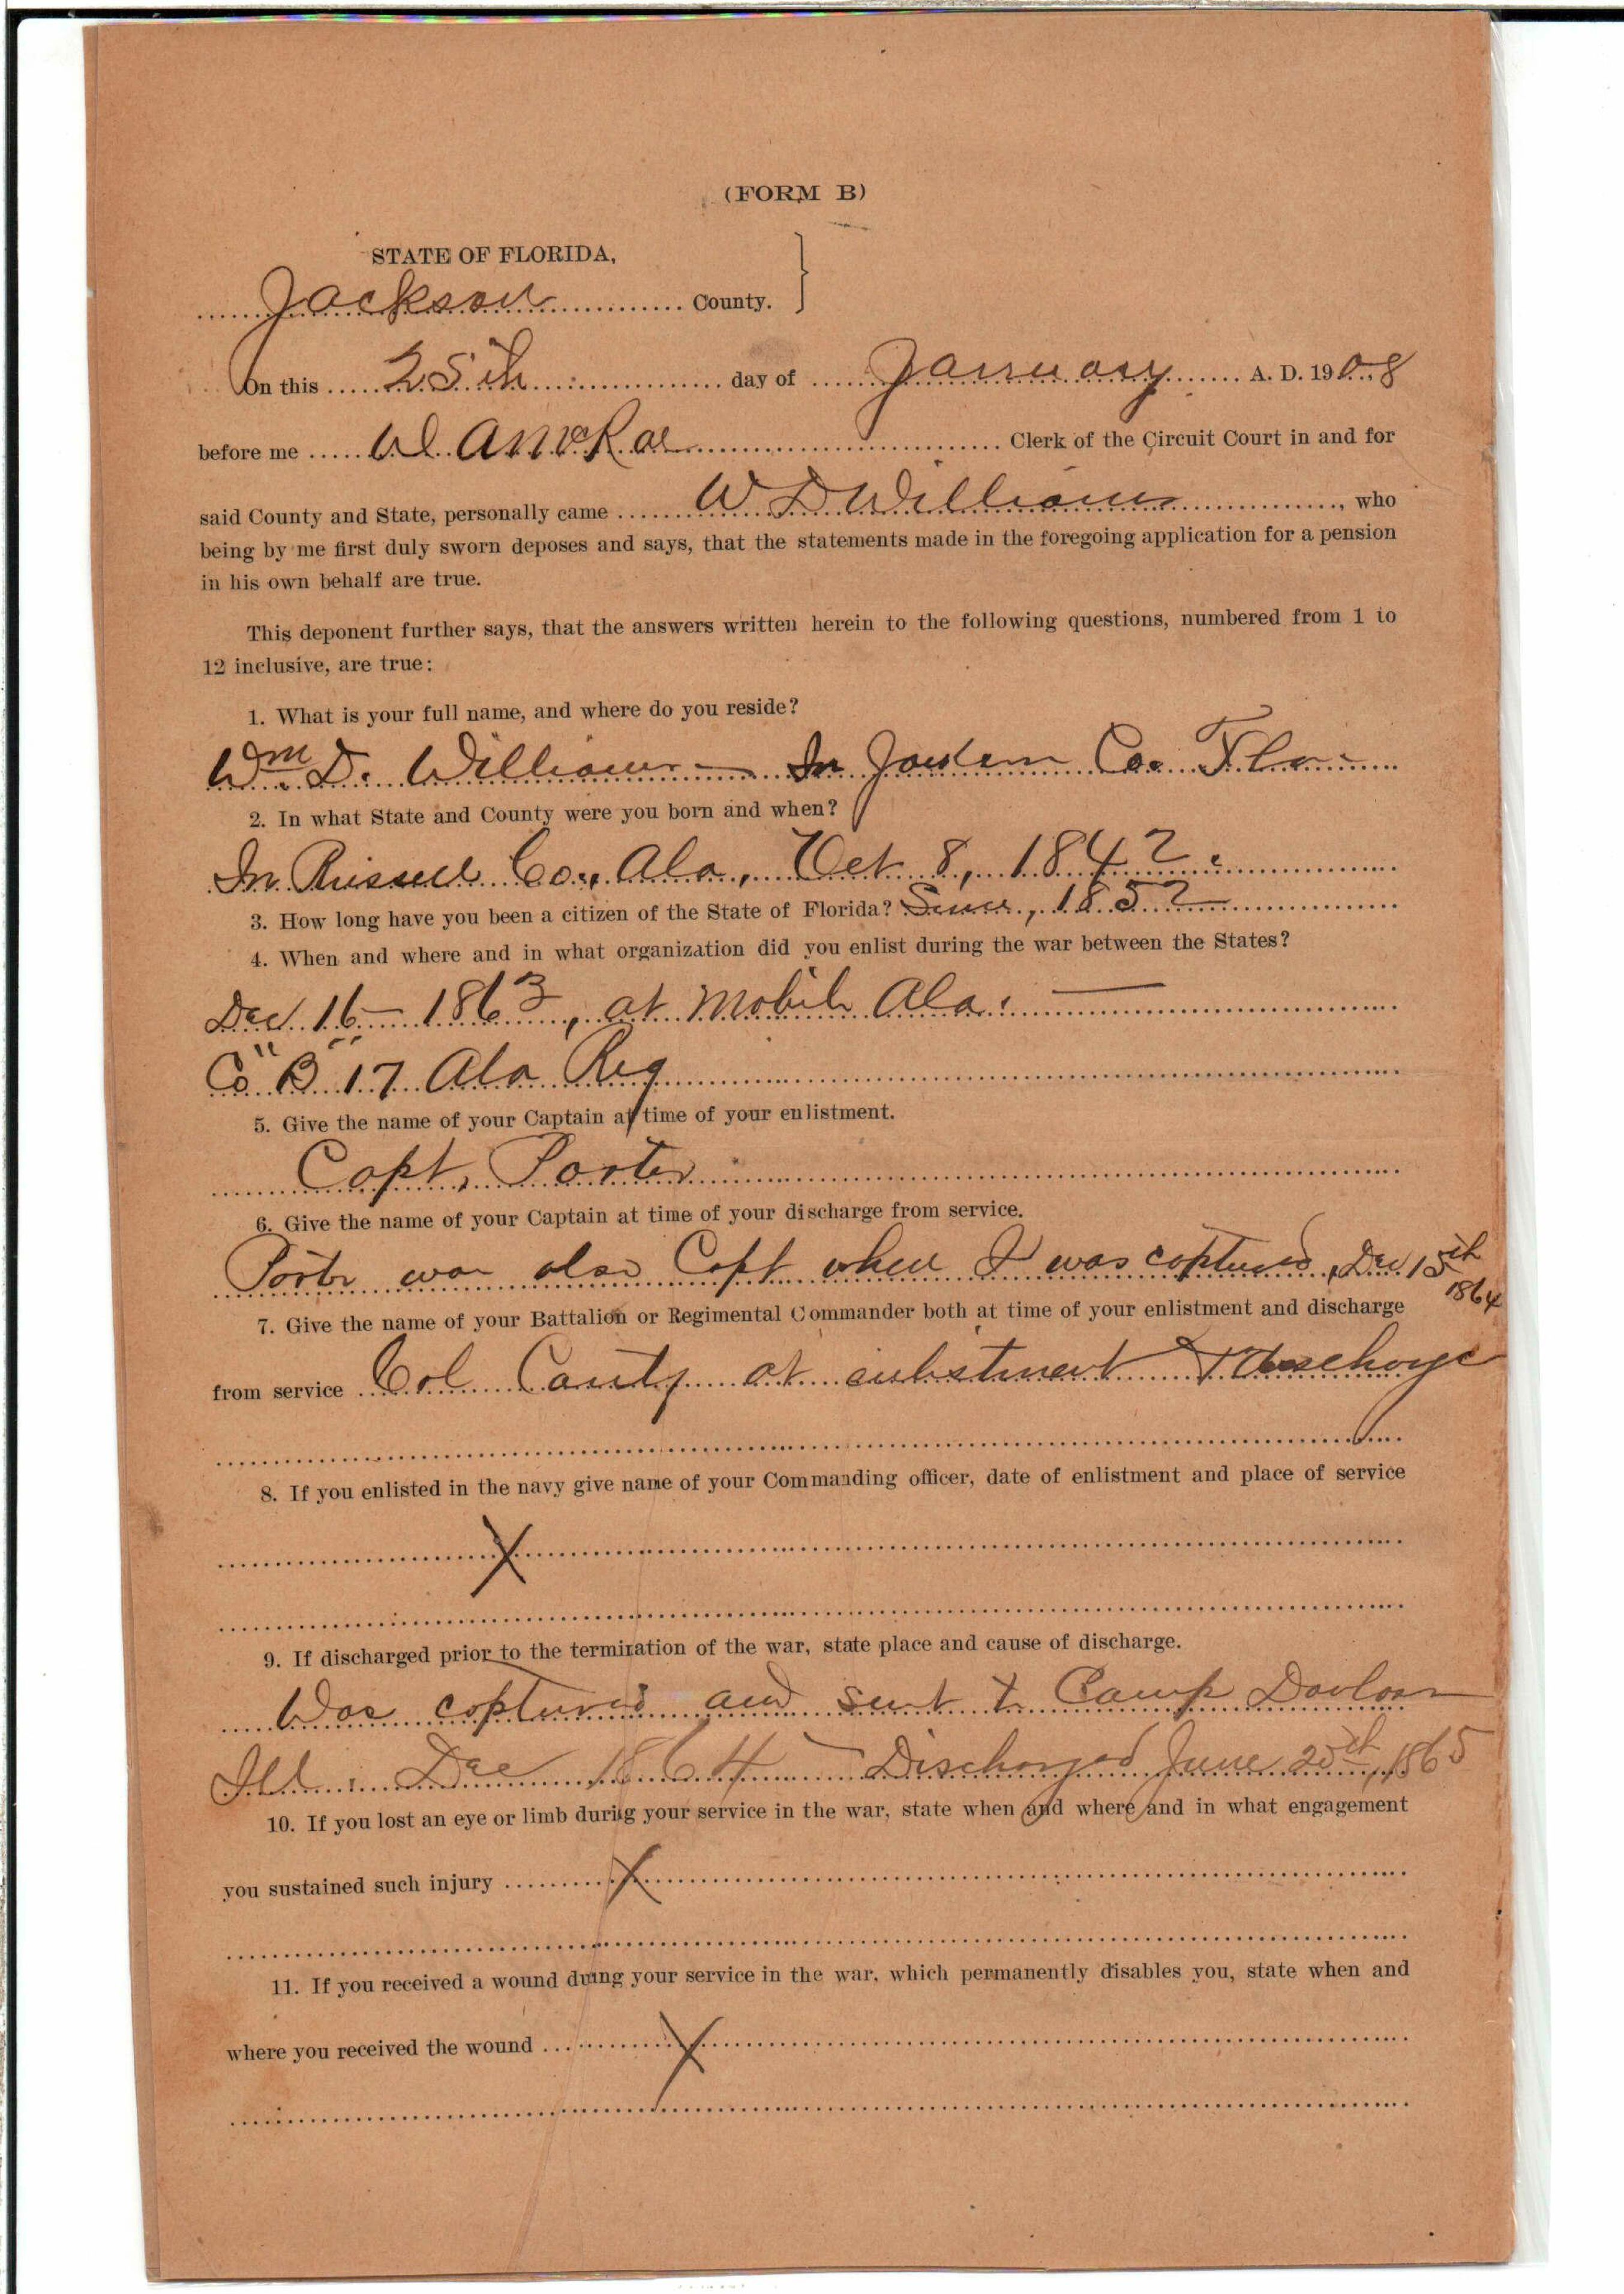 (FORM B)
STATE OF FLORIDA,
Jackson County.
On this 25th day of January A. D. 1908
before me Clerk of the Circuit Court in and for
said County and State, personally came W D Williams, who
being by me first duly sworn deposes and says, that the statements made in the foregoing application for a pension
in his own behalf are true.
This deponent further says, that the answers written herein to the following questions, numbered from 1 to
12 inclusive, are true:
1. What is your full name, and where do you reside?
Wm D. Williams — In Jackson Co. Fla.
2. In what State and County were you born and when?
In Russell Co., Ala, Oct 8, 1842.
3. How long have you been a citizen of the State of Florida? Since, 1852
4. When and where and in what organization did you enlist during the war between the States?
Dec 16 – 1863, at Mobile Ala. —
Co "B" 17 Ala Reg
5. Give the name of your Captain at time of your enlistment.
Capt. Porter
6. Give the name of your Captain at time of your discharge from service.
Porter was also Capt when I was captured, Dec 15th 1864
7. Give the name of your Battalion or Regimental Commander both at time of your enlistment and discharge
from service Col at enlistment & discharge
8. If you enlisted in the navy give name of your Commanding officer, date of enlistment and place of service
X
9. If discharged prior to the termination of the war, state place and cause of discharge.
Was captured and sent to Camp
Ill. Dec 1864 – Discharged June 20th, 1865
10. If you lost an eye or limb during your service in the war, state when and where and in what engagement
you sustained such injury X
11. If you received a wound duing your service in the war, which permanently disables you, state when and
where you received the wound X